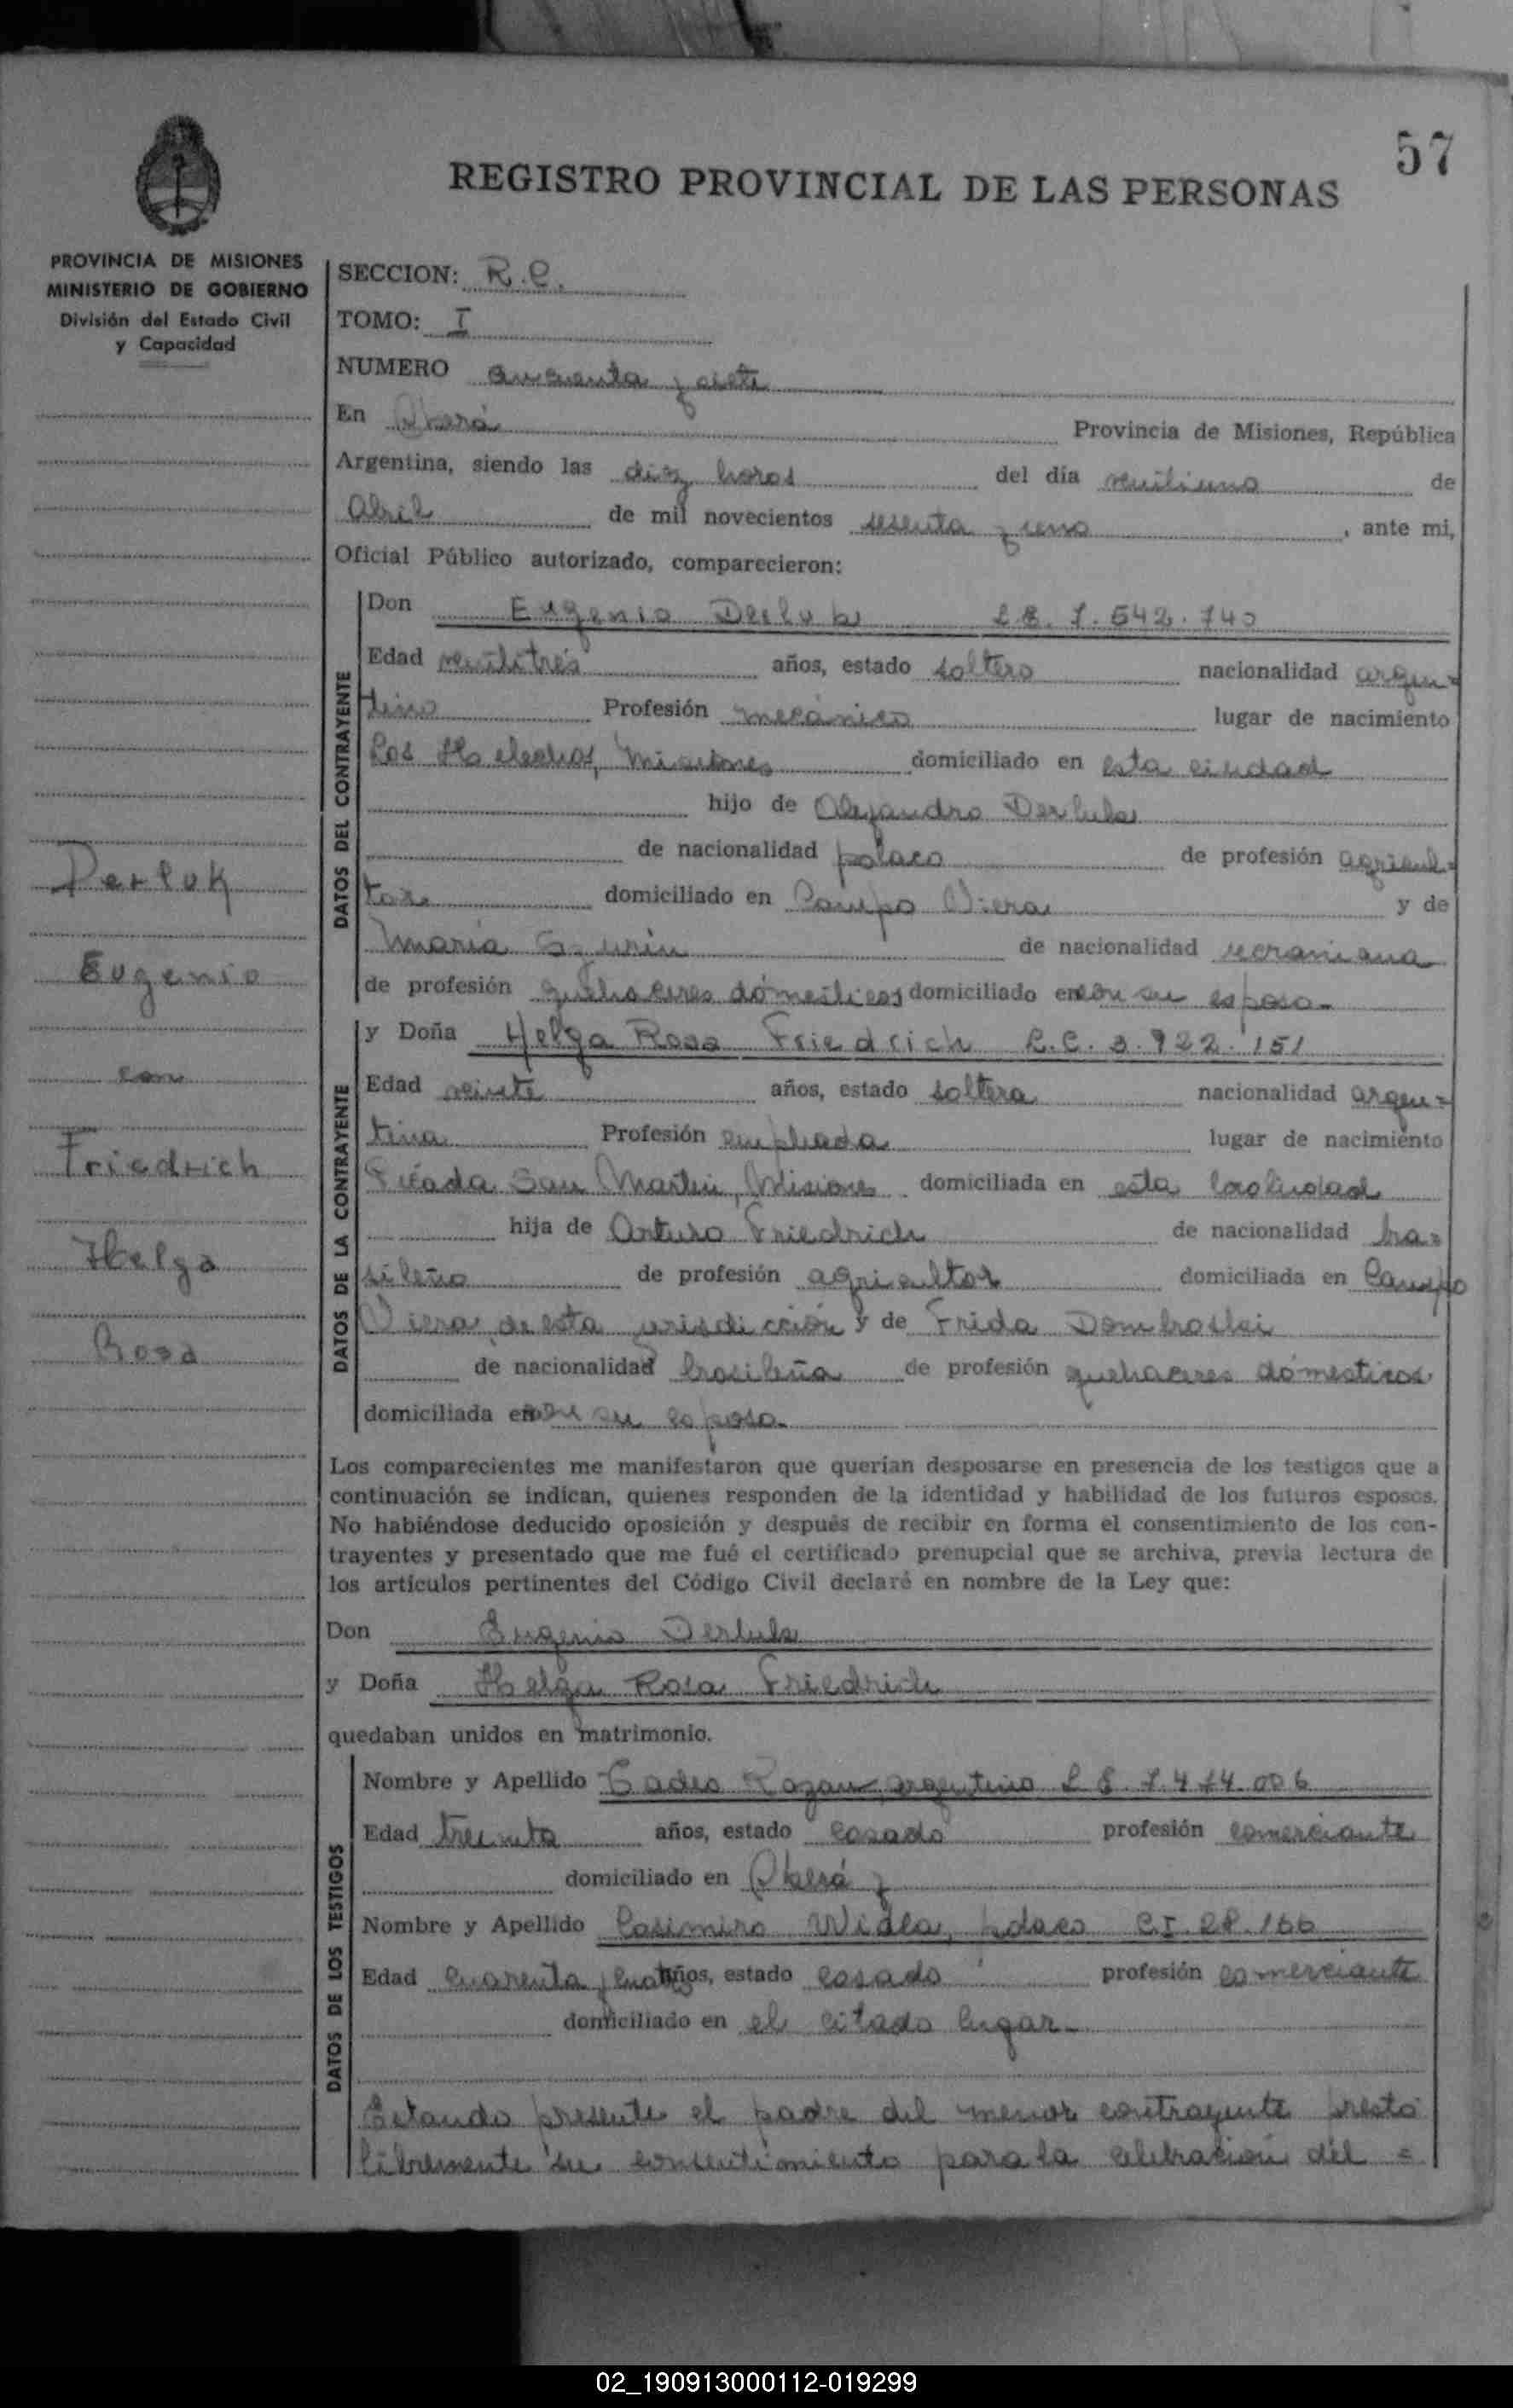 57
REGISTRO PROVINCIAL DE LAS PERSONAS
PROVINCIA DE MISIONES
MINISTERIO DE GOBIERNO
División del Estado Civil
y Capacidad
SECCION: R.C.
TOMO: I
NUMERO cincuenta y siete
En Oberá Provincia de Misiones, República
Argentina, siendo las diez horas del día veintiuno de
Abril de mil novecientos sesenta y uno, ante mi,
Oficial Público autorizado, comparecieron:
DATOS DEL CONTRAYENTE
Don Eugenio Derluk L.E. 7.542.740
Edad veintitrés años, estado soltero nacionalidad argen=
tino Profesión mecánico lugar de nacimiento
Los Helechos, Misiones domiciliado en esta ciudad
hijo de Alejandro Derluk
de nacionalidad polaco de profesión agricul=
tor domiciliado en Campo Viera y de
María de nacionalidad ucraniana
de profesión quehaceres domésticos domiciliado en con su esposo-
DATOS DE LA CONTRAYENTE
y Doña Helga Rosa Friedrich L.C. 3.922.151
Edad veinte años, estado soltera nacionalidad argen=
tina Profesión empleada lugar de nacimiento
Picada San Martín, Misiones domiciliada en esta localidad
hija de Arturo Friedrich de nacionalidad bra=
sileño de profesión agricultor domiciliada en Campo
Viera de esta jurisdicción y de Frida Dombroski
de nacionalidad brasileña de profesión quehaceres domésticos
domiciliada en con su esposo-
Derluk
Eugenio
con
Friedrich
Helga
Rosa
Los comparecientes me manifestaron que querían desposarse en presencia de los testigos que a
continuación se indican, quienes responden de la identidad y habilidad de los futuros esposos.
No habiéndose deducido oposición y después de recibir en forma el consentimiento de los con-
trayentes y presentado que me fué el certificado prenupcial que se archiva, previa lectura de
los artículos pertinentes del Código Civil declaré en nombre de la Ley que:
Don Eugenio Derluk
y Doña Helga Rosa Friedrich
quedaban unidos en matrimonio.
DATOS DE LOS TESTIGOS
Nombre y Apellido Tadeo argentino L E 7.474.006
Edad treinta años, estado casado profesión comerciante
domiciliado en Oberá y
Nombre y Apellido Casimiro Widla, polaco C.I. 28.166
Edad cuarenta y cuatro años, estado casado profesión comerciante
domiciliado en el citado lugar-
Estando presente el padre del menor contrayente prestó
libremente su consentimiento para la celebración del =
02_190913000112-019299